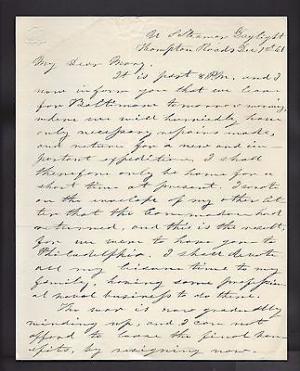 U S Steamer Daylight
Hampton Roads Dec 1st 64
My Dear Mary.
It is past 8 P.M. and I
now inform you that we leave
for Baltimore tomorrow morning,
where we will hurriedly have
only necessary repairs made,
and return for a new and im-
portant expedition. I shall
therefore only be home for a
short time at present. I wrote
on the envelope of my other let
ter that the Commodore had
returned, and this is the result,
for we were to have gone to
Philadelphia. I shall devote
all my leisure time to my
family, having some profession
al naval business to do there.
The war is now gradually
winding up, and I can not
afford to leave the final ben
efits, by resigning now.